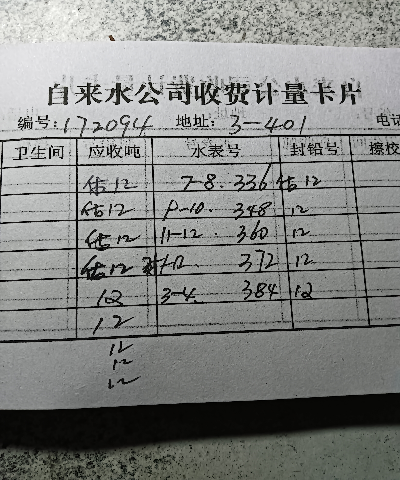 自来水公司收费计量卡片
编号:172094 地址: 3-401 电话
卫生间 应收吨 水表号 封铅号 擦校
估12 7-8 336 估12
估12 9-10 348 12
估12 11-12 360 12
估12 372 12
12 3-4 384 12
12
12
12
12